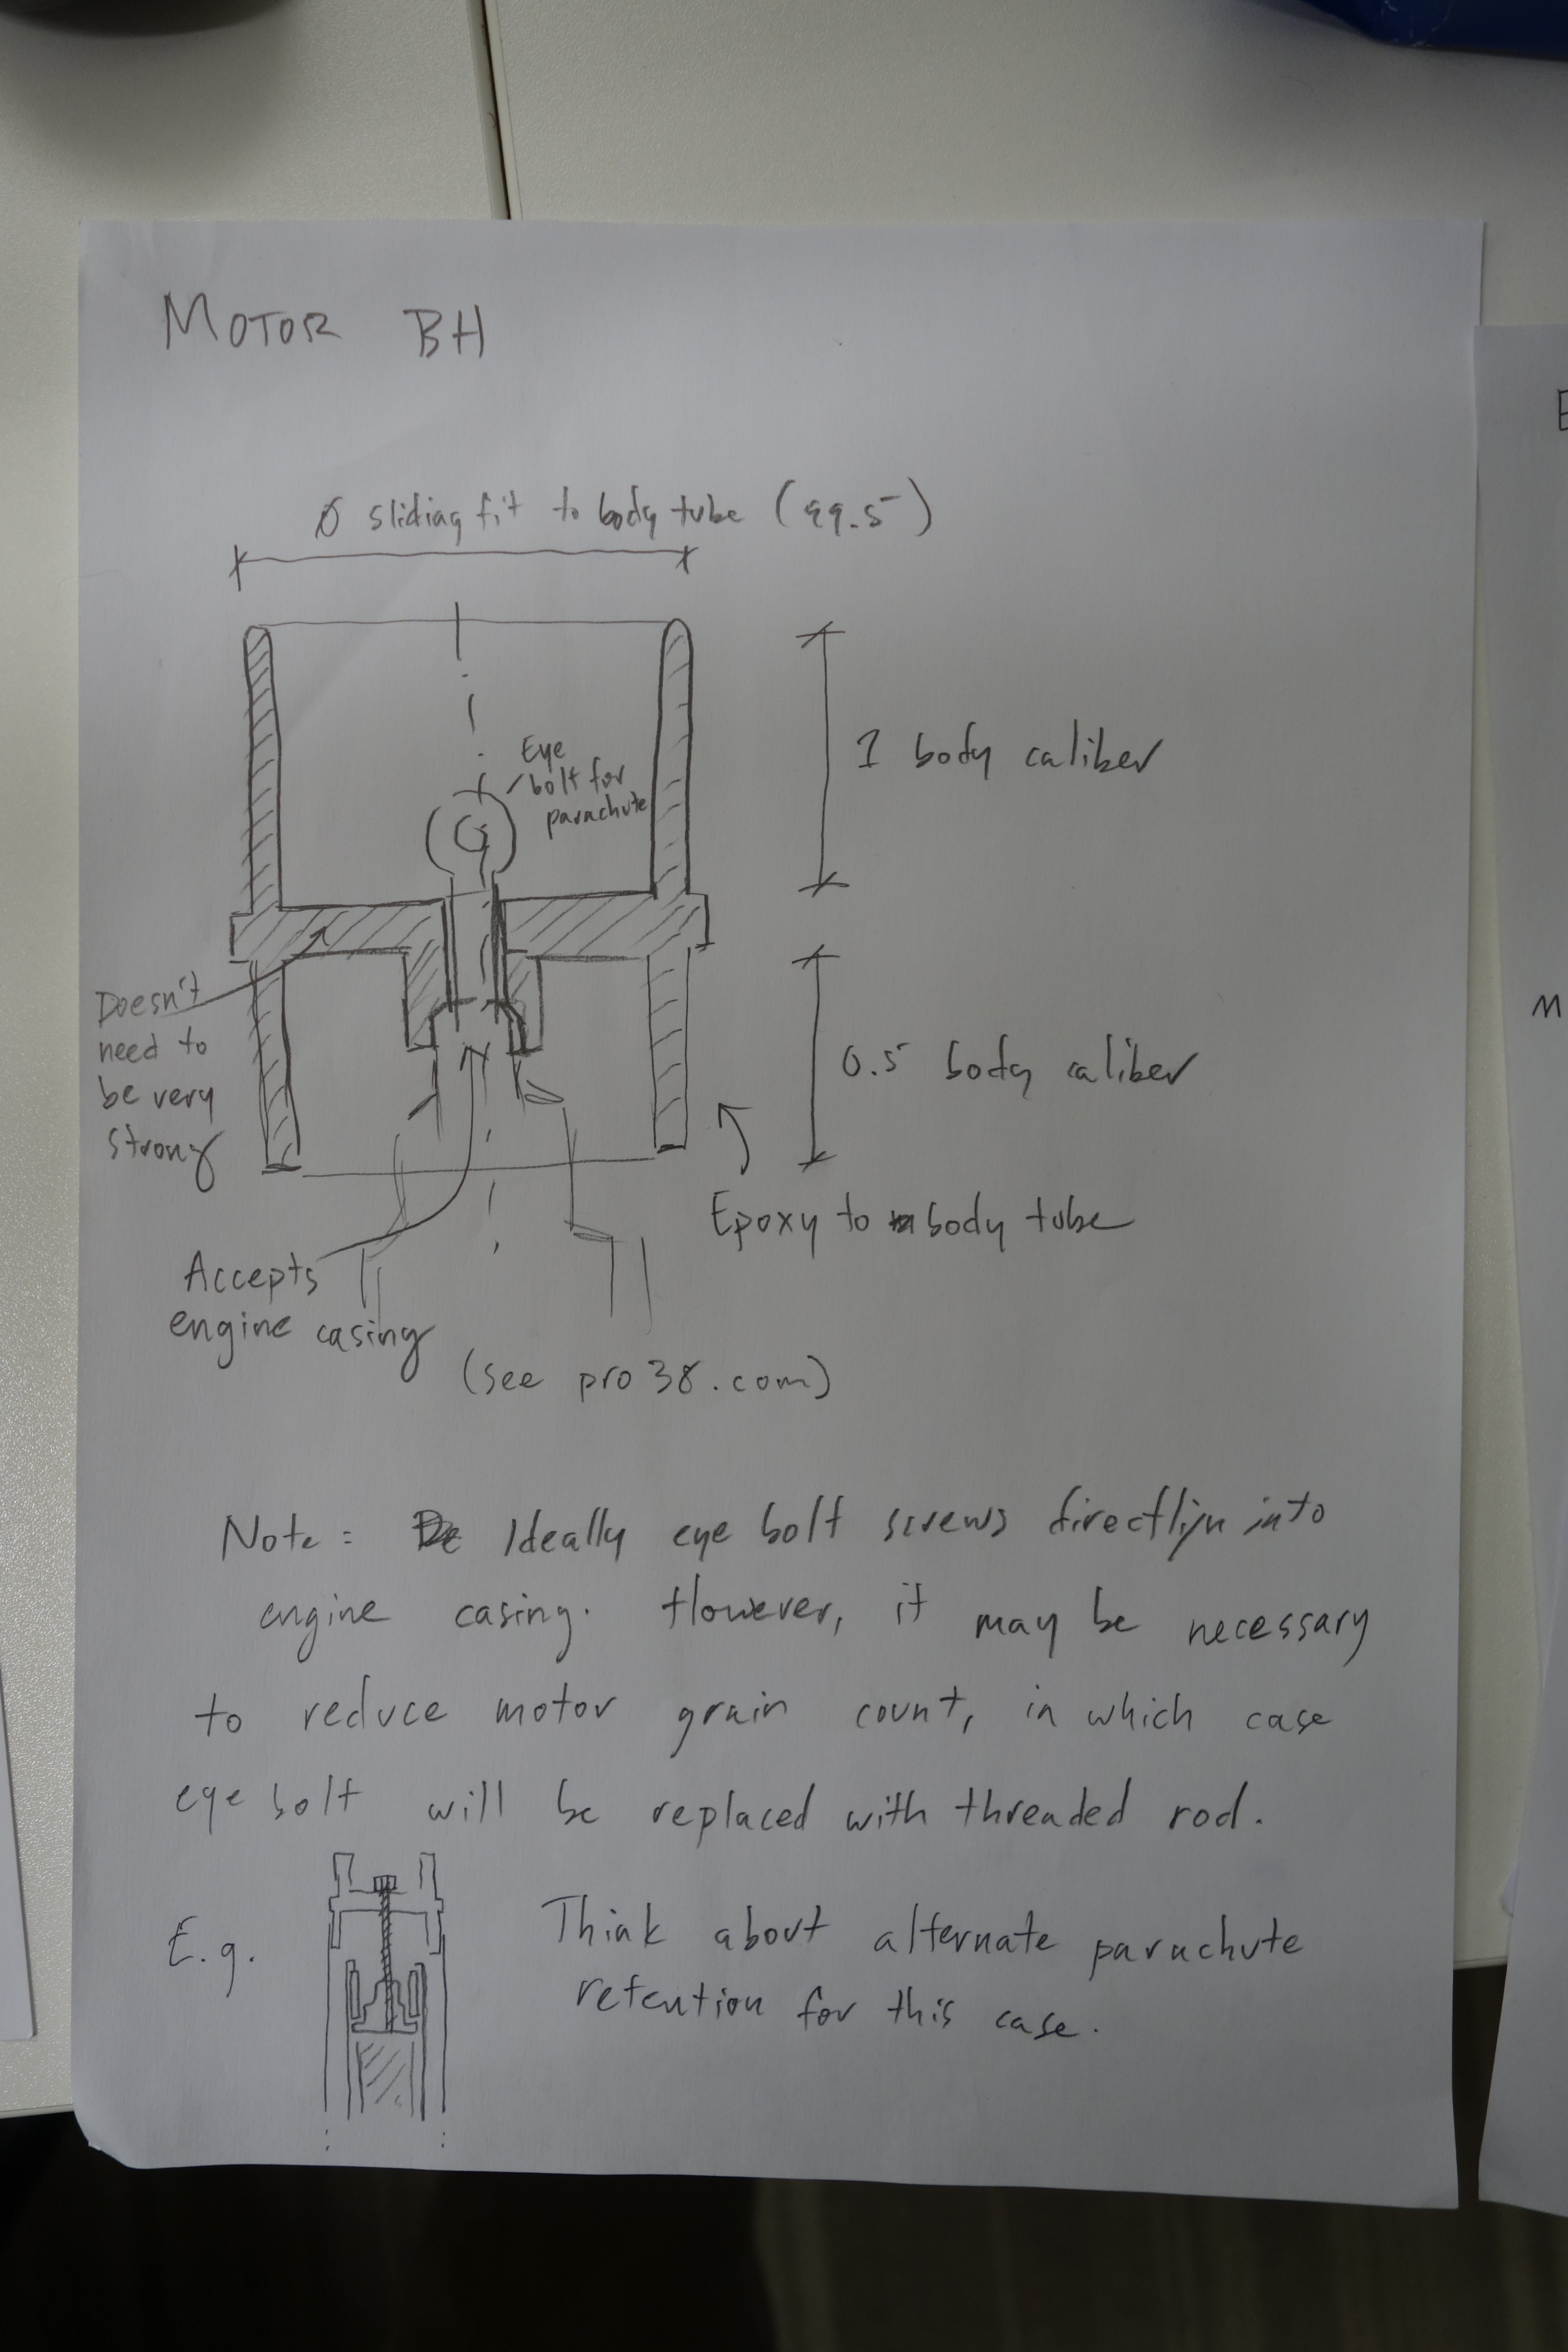 MOTOR BH
Ø sliding fit to body tube (99.5)
Eye
bolt for
parachute
1 body caliber
Doesn't
need to
be very
strong
0.5 body caliber
Epoxy to body tube
Accepts
engine casing
(see pro38.com)
Note: Ideally eye bolt screws directly into
engine casing. However, it may be necessary
to reduce motor grain count, in which case
eye bolt will be replaced with threaded rod.
E.g.
Think about alternate parachute
retention for this case.
E
M